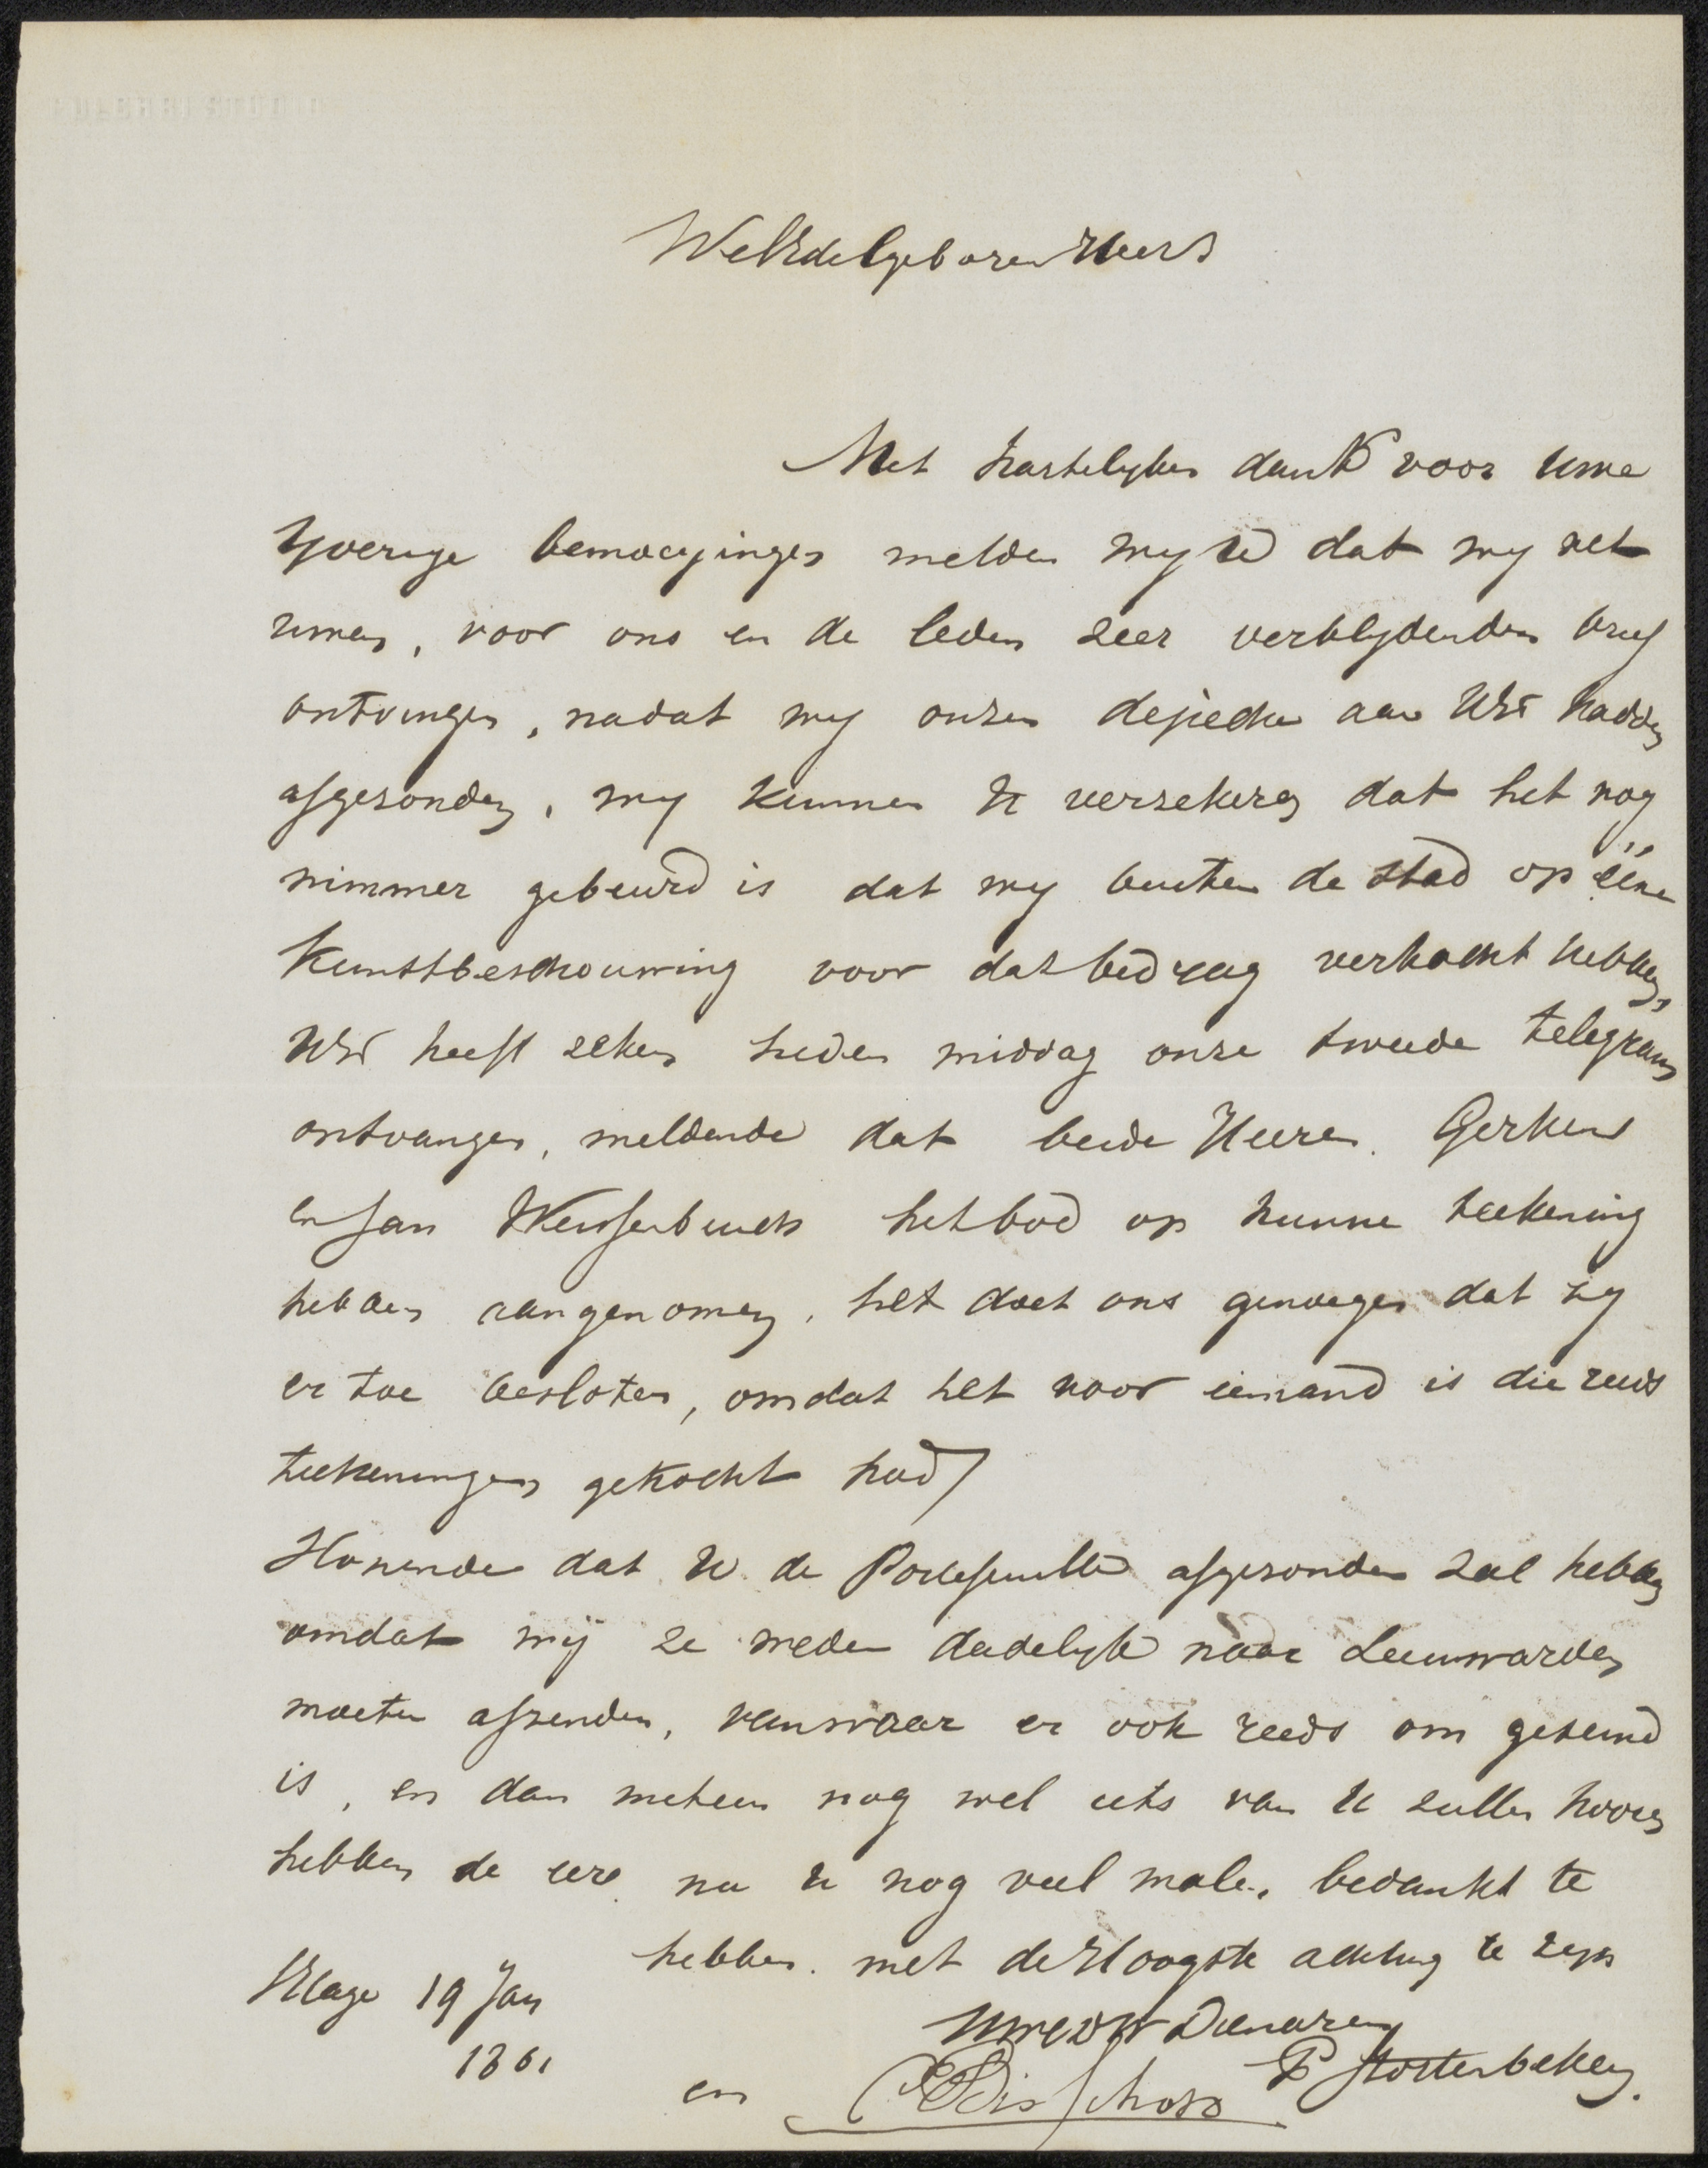 PULCHRI STUDIO
WelEdelgeboren Heer
Met hartelyken dank voor uwe
Yverige bemoeyingen melden wy U dat wy het
uwen, voor ons en de leden zeer verblydenden brief
ontvingen, nadat wy onzen depeche aan UEd hadden
afgezonden, wy kunnen U verzekeren dat het nog
nimmer gebeurd is dat wy buiten de stad op ééne
Kunstbeschouwing voor dat bedrag verkocht hebben,
UEd heeft zeker heden middag onze tweede telegram
ontvangen, meldende dat beide Heeren Gerkens
en Jan Weissenbruch het bod op hunne teekening
hebben aangenomen, het doet ons genoegen dat zy
er toe besloten, omdat het voor iemand is die reeds
teekeningen gekocht had/
Hopende dat U de Portefeuille afgezonden zal hebben
omdat wij ze weder dadelyk naar Leeuwarden
moeten afzenden, vanwaar er ook reeds om geseind
is, en dan meteen nog wel iets van U zullen hooren
hebben de eer na U nog veel malen bedankt te
hebben. met de Hoogste achting te zyn
UwEdW Dienaren
P Stortenbeker
en Bisschop
Hage 19 Jan
1861